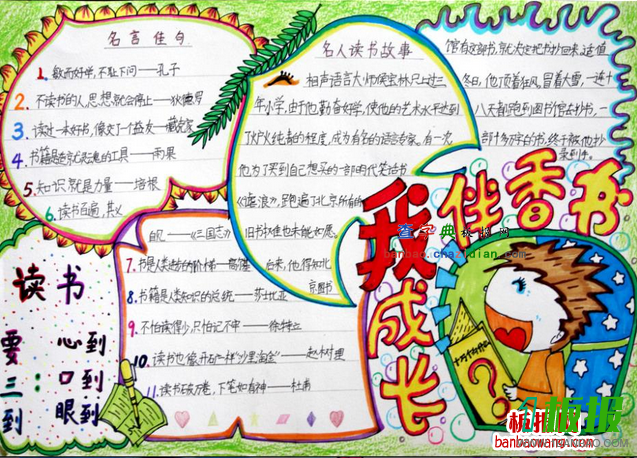 名言佳句
1、敏而好学,不耻下问——孔子
2、不读书的人,思想就会停止——狄德罗
3、读过一本好书,像交了一个益友——臧克家
4、书籍是造就灵魂的工具——雨果
5、知识就是力量——培根
6、读书百遍,其义
自见——《三国志》
7、书是人类进步的阶梯——高尔基
8、书籍是人类知识的总统——莎士比亚
9、不怕读得少,只怕记不牢——徐特立
10、读书也像开矿一样"沙里淘金"——赵树理
11、读书破万卷,下笔如有神——杜甫
名人读书故事
相声语言大师侯宝林只上过三
年小学,由于他勤奋好学,使他的艺术水平达到
了炉火纯青的程度,成为有名的语言专家。有一次
他为了买到自己想买的一部明代笑话书
《谑浪》,跑遍了北京所有的
旧书摊也未能如愿。
后来,他得知北
京图书
馆有这部书,就决定把书抄回来。适值
冬日,他顶着狂风,冒着大雪,一连十
八天都跑到图书馆去抄书,一
部十多万字的书,终于被他抄
录到手。
书香伴
我成长
读书
要 心到
三: 口到
到 眼到
?
查字典 板报网
banbao.chazidian.com
板报网
banbaowang.com
板报